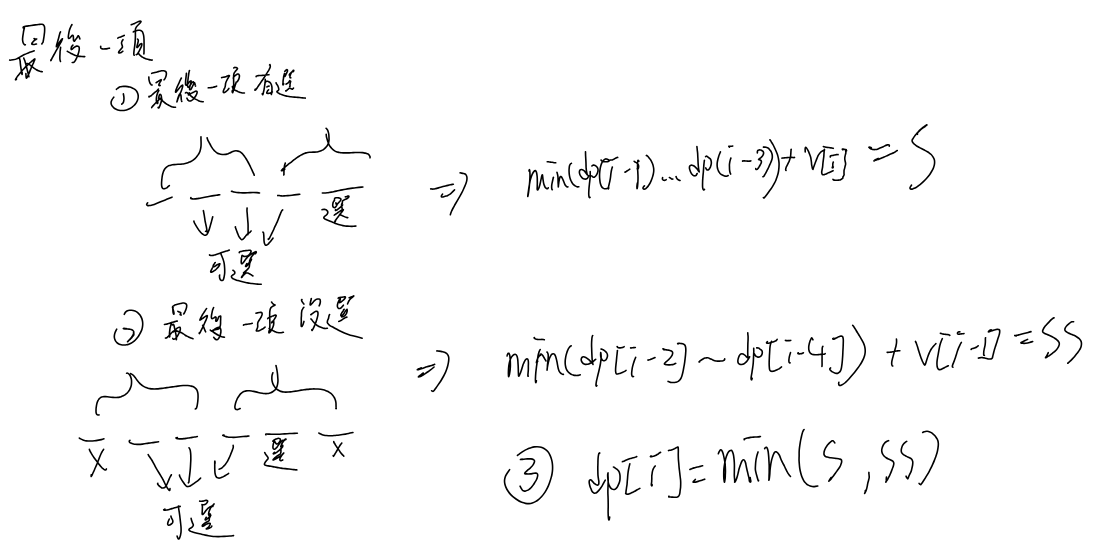 最後一項
① 最後一項有選
選
可選
=> min(dp(i-1)...dp(i-3))+v[i] = S
② 最後一項沒選
=> min(dp[i-2] ~ dp[i-4]) + v[i-1] = SS
X 選 X
可選
③ dp[i] = min(S, SS)